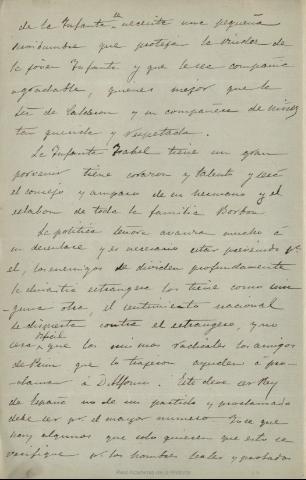 de la Infanta necesita una pequeña
servidumbre que proteja la viudez de
la joven Infanta y que le sea compañia
agradable, quienes mejor que la
Sra de Calderon y su compañera de niñez
tan querida y respetada.
La Infanta Isabel tiene un gran
porvenir tiene corazon y talento y será
el consejo y amparo de su hermano y el
eslabon de toda la familia Borbon
La politica Señora avanza mucho á
un desenlace y es necesario estar prevenidos pª
el, los enemigos se dividen profundamente
la dinastia estrangera los tiene como nin-
guna otra, el sentimiento nacional
se dispierta contra el estrangero, y no
será facil que los mismos radicales los amigos
de Prim que lo trajeron ayuden á pro-
clamar á D. Alfonso. Este debe ser Rey
de España no de un partido y proclamado
debe ser pr. el mayor numero. Se que
hay algunos que solo quieren que esto se
verifique pr. los hombres leales y probados
Real Academia de la Historia